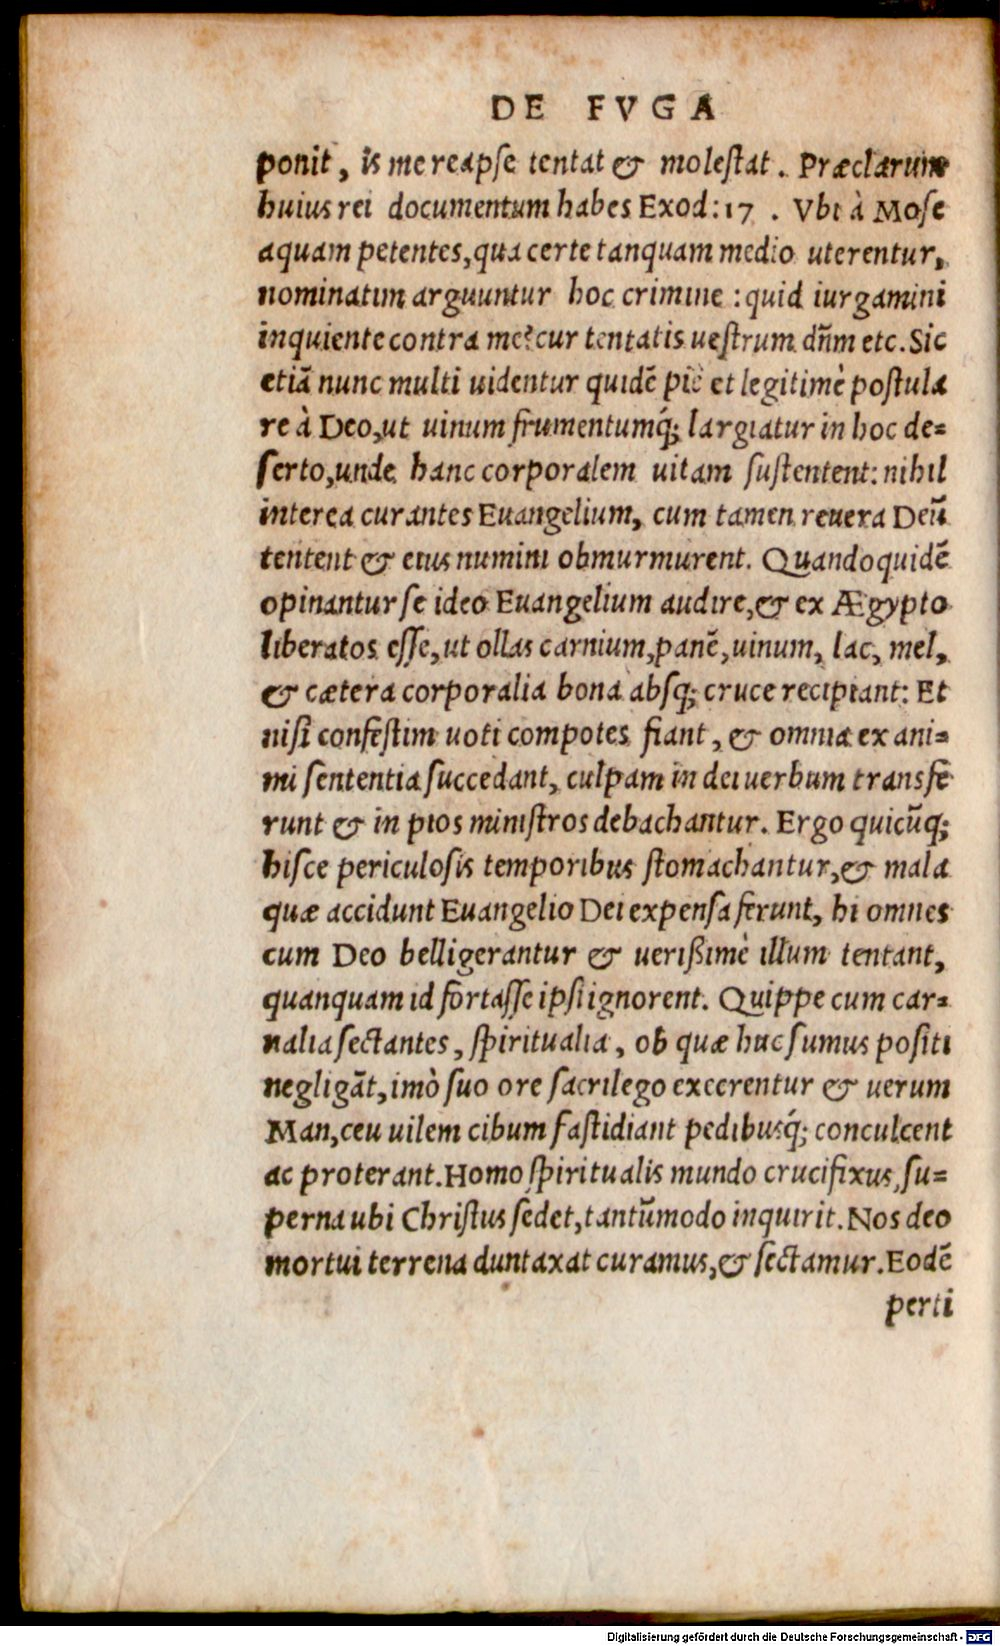 DE FVGA
ponit, is me reapse tentat & molestat. Præclarum
huius rei documentum habes Exod: 17 . Vbi à Mose
aquam petentes, qua certe tanquam medio uterentur,
nominatim arguuntur hoc crimine : quid iurgamini
inquiente contra me? cur tentatis uestrum dñm etc. Sic
etiã nunc multi uidentur quidẽ piè et legitimè postula
re à Deo, ut uinum frumentumq́; largiatur in hoc de=
serto, unde hanc corporalem uitam sustentent: nihil
interea curantes Euangelium, cum tamen reuera Deũ
tentent & eius numini obmurmurent. Quandoquidẽ
opinantur se ideo Euangelium audire, & ex Ægypto
liberatos esse, ut ollas carnium, panẽ, uinum, lac, mel,
& cætera corporalia bona absq; cruce recipiant: Et
nisi confestim uoti compotes fiant, & omnia ex ani=
mi sententia succedant, culpam in dei uerbum transfe
runt & in pios ministros debachantur. Ergo quicũq;
hisce periculosis temporibus stomachantur, & mala
quæ accidunt Euangelio Dei expensa ferunt, hi omnes
cum Deo belligerantur & uerißimè illum tentant,
quanquam id fortasse ipsi ignorent. Quippe cum car=
nalia sectantes, spiritualia, ob quæ huc sumus positi
negligãt, imò suo ore sacrilego execrentur & uerum
Man, ceu uilem cibum fastidiant pedibusq́; conculcent
ac proterant. Homo spiritualis mundo crucifixus, su=
perna ubi Christus sedet, tantũmodo inquirit. Nos deo
mortui terrena duntaxat curamus, & sectamur. Eodẽ
perti
Digitalisierung gefördert durch die Deutsche Forschungsgemeinschaft - DFG